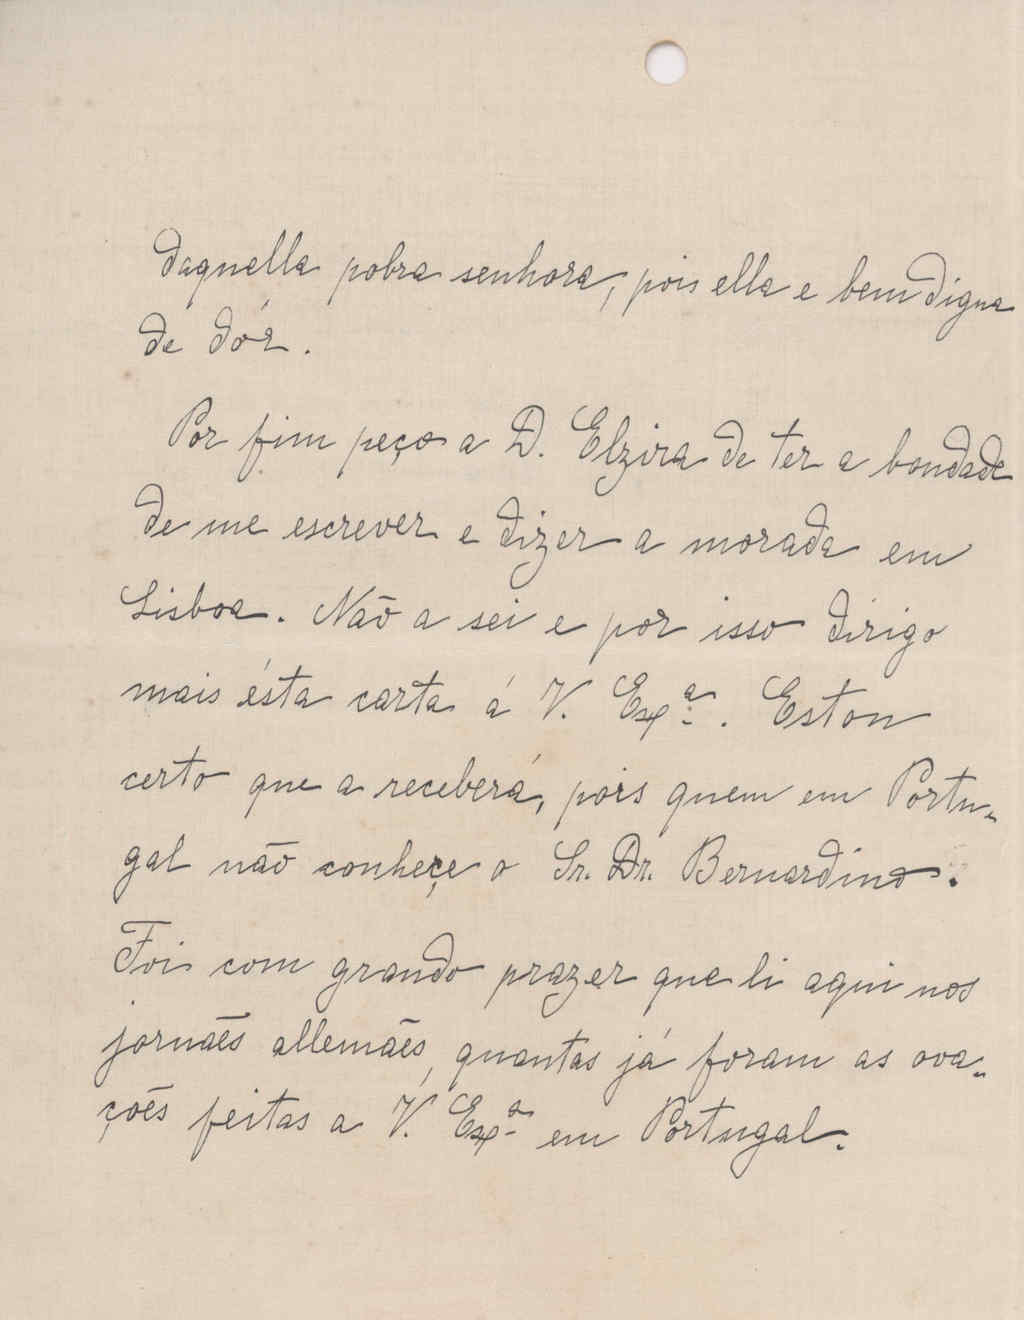 daquella pobra senhora, pois ella e bem digna
de dór.
Por fim peço a D. Elzira de ter a bondade
de me escrever e dizer a morada em
Lisboa. Não a sei e por isso dirigo
mais ésta carta á V. Exª. Estou
certo que a receberá, pois quem em Portu-
gal não conheçe o Sr. Dr. Bernardino.
Foi com grando prazer que li aqui nos
jornães allemães, quantas já foram as ova-
ções feitas a V. Exª em Portugal.